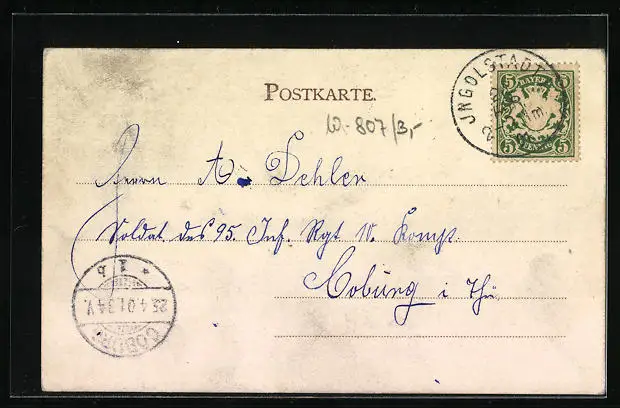 JNGOLSTADT
5 BAYERN 5
5 PFENNIG 5
POSTKARTE.
W-807/3,-
Herrn A. Dehler
Soldat des 95. Inf. Rgt 10. Komp.
Coburg i Thü
* 1 b
25.4.01.3-4 V.
COBURG